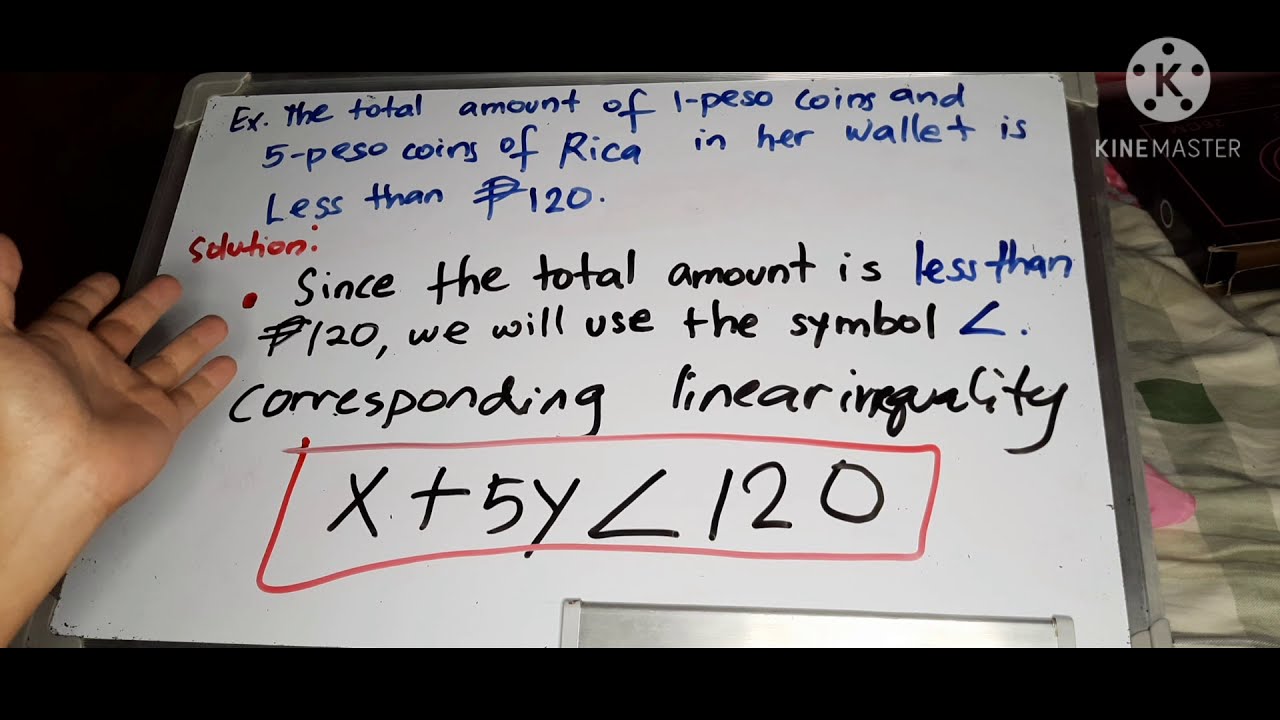 Ex. The total amount of 1-peso coins and
5-peso coins of Rica in her wallet is
Less than ₱120.
Solution:
• Since the total amount is less than
₱120, we will use the symbol <.
corresponding linear inequality
x + 5y < 120
K
KINEMASTER